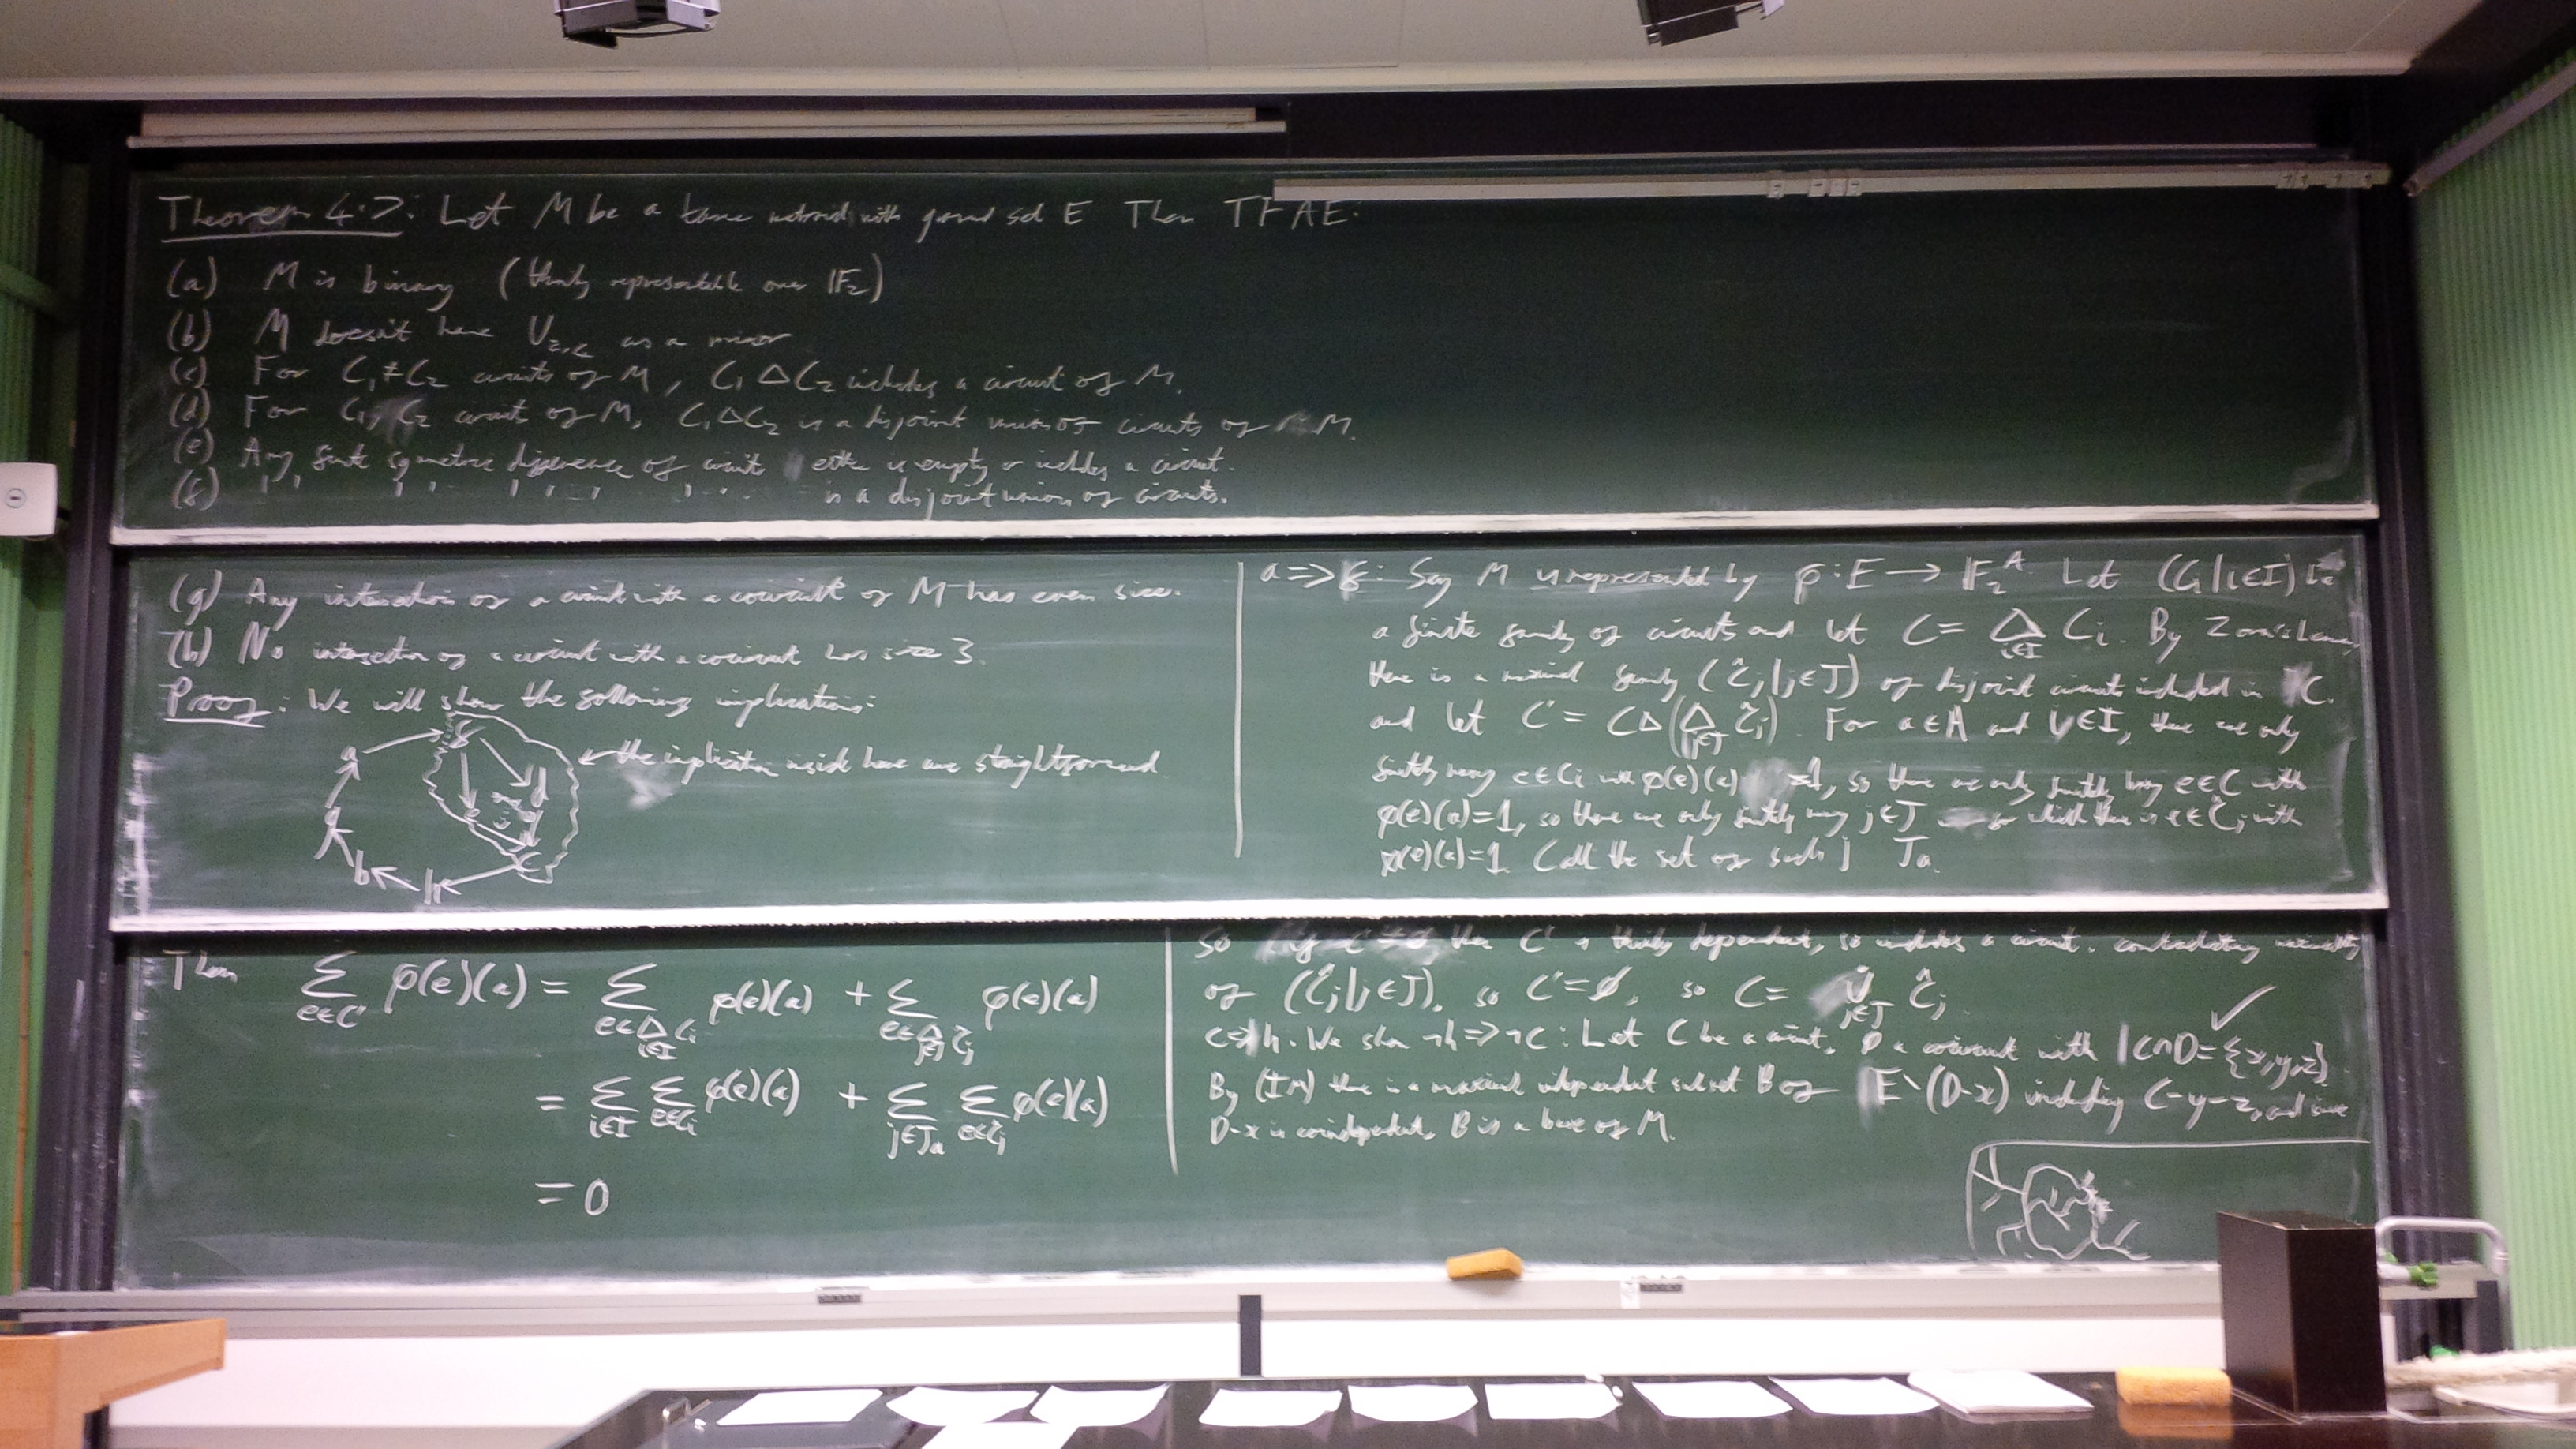 Theorem 4.7: Let M be a tame matroid with ground set E Then TFAE:
(a) M is binary (thinly representable over 𝔽₂)
(b) M doesn't have U₂,₄ as a minor
(c) For C₁≠C₂ circuits of M, C₁ΔC₂ includes a circuit of M.
(d) For C₁, C₂ circuits of M, C₁ΔC₂ is a disjoint union of circuits of M.
(e) Any finite symmetric difference of circuits either is empty or includes a circuit.
(f) '' '' '' '' is a disjoint union of circuits.
(g) Any intersection of a circuit with a cocircuit of M has even size.
(h) No intersection of a circuit with a cocircuit has size 3.
Proof: We will show the following implications:
f
a
← the implications inside here are straightforward
d
g
e
c
b
h
a => f: Say M is represented by φ: E → 𝔽₂ᴬ Let (Cᵢ|i∈I) be
a finite family of circuits and let C = Δ_{i∈I} Cᵢ. By Zorn's Lemma,
there is a maximal family (Ĉⱼ|j∈J) of disjoint circuits included in C.
and let C' = CΔ(Δ_{j∈J} Ĉⱼ). For a∈A and i∈I, there are only
finitely many e∈Cᵢ with φ(e)(a)=1, so there are only finitely many e∈C with
φ(e)(a)=1, so there are only finitely many j∈J for which there is e∈Ĉⱼ with
φ(e)(a)=1. Call the set of such j Jₐ.
Then Σ_{e∈C'} φ(e)(a) = Σ_{e∈Δ_{i∈I} Cᵢ} φ(e)(a) + Σ_{e∈Δ_{j∈J} Ĉⱼ} φ(e)(a)
= Σ_{i∈I} Σ_{e∈Cᵢ} φ(e)(a) + Σ_{j∈Jₐ} Σ_{e∈Ĉⱼ} φ(e)(a)
= 0
So if C'≠∅ then C' is thinly dependent, so includes a circuit, contradicting maximality
of (Ĉⱼ|j∈J). so C'=∅, so C = ⋃̇_{j∈J} Ĉⱼ. ✓
c=>h. We show ¬h=>¬c: Let C be a circuit, D a cocircuit with C∩D={x,y,z}
By (IM) there is a maximal independent subset B of E∖(D-x) including C-y-z, and since
D-x is coindependent, B is a base of M.